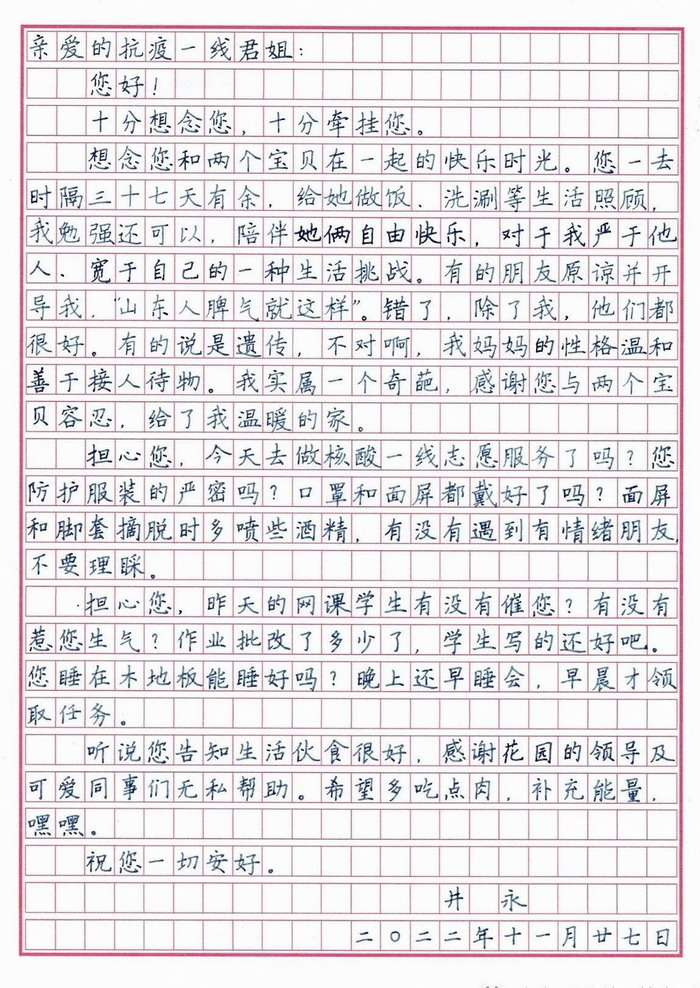 亲爱的抗疫一线君姐：
您好！
十分想念您，十分牵挂您。
想念您和两个宝贝在一起的快乐时光。您一去
时隔三十七天有余，给她做饭、洗涮等生活照顾，
我勉强还可以，陪伴她俩自由快乐，对于我严于他
人、宽于自己的一种生活挑战。有的朋友原谅并开
导我，“山东人脾气就这样”。错了，除了我，他们都
很好。有的说是遗传，不对啊，我妈妈的性格温和
善于接人待物。我实属一个奇葩，感谢您与两个宝
贝容忍，给了我温暖的家。
担心您，今天去做核酸一线志愿服务了吗？您
防护服装的严密吗？口罩和面屏都戴好了吗？面屏
和脚套摘脱时多喷些酒精，有没有遇到有情绪朋友，
不要理睬。
担心您，昨天的网课学生有没有催您？有没有
惹您生气？作业批改了多少了，学生写的还好吧。
您睡在木地板能睡好吗？晚上还早睡会，早晨才领
取任务。
听说您告知生活伙食很好，感谢花园的领导及
可爱同事们无私帮助。希望多吃点肉，补充能量，
嘿嘿。
祝您一切安好。
井 永
二〇二二年十一月廿七日